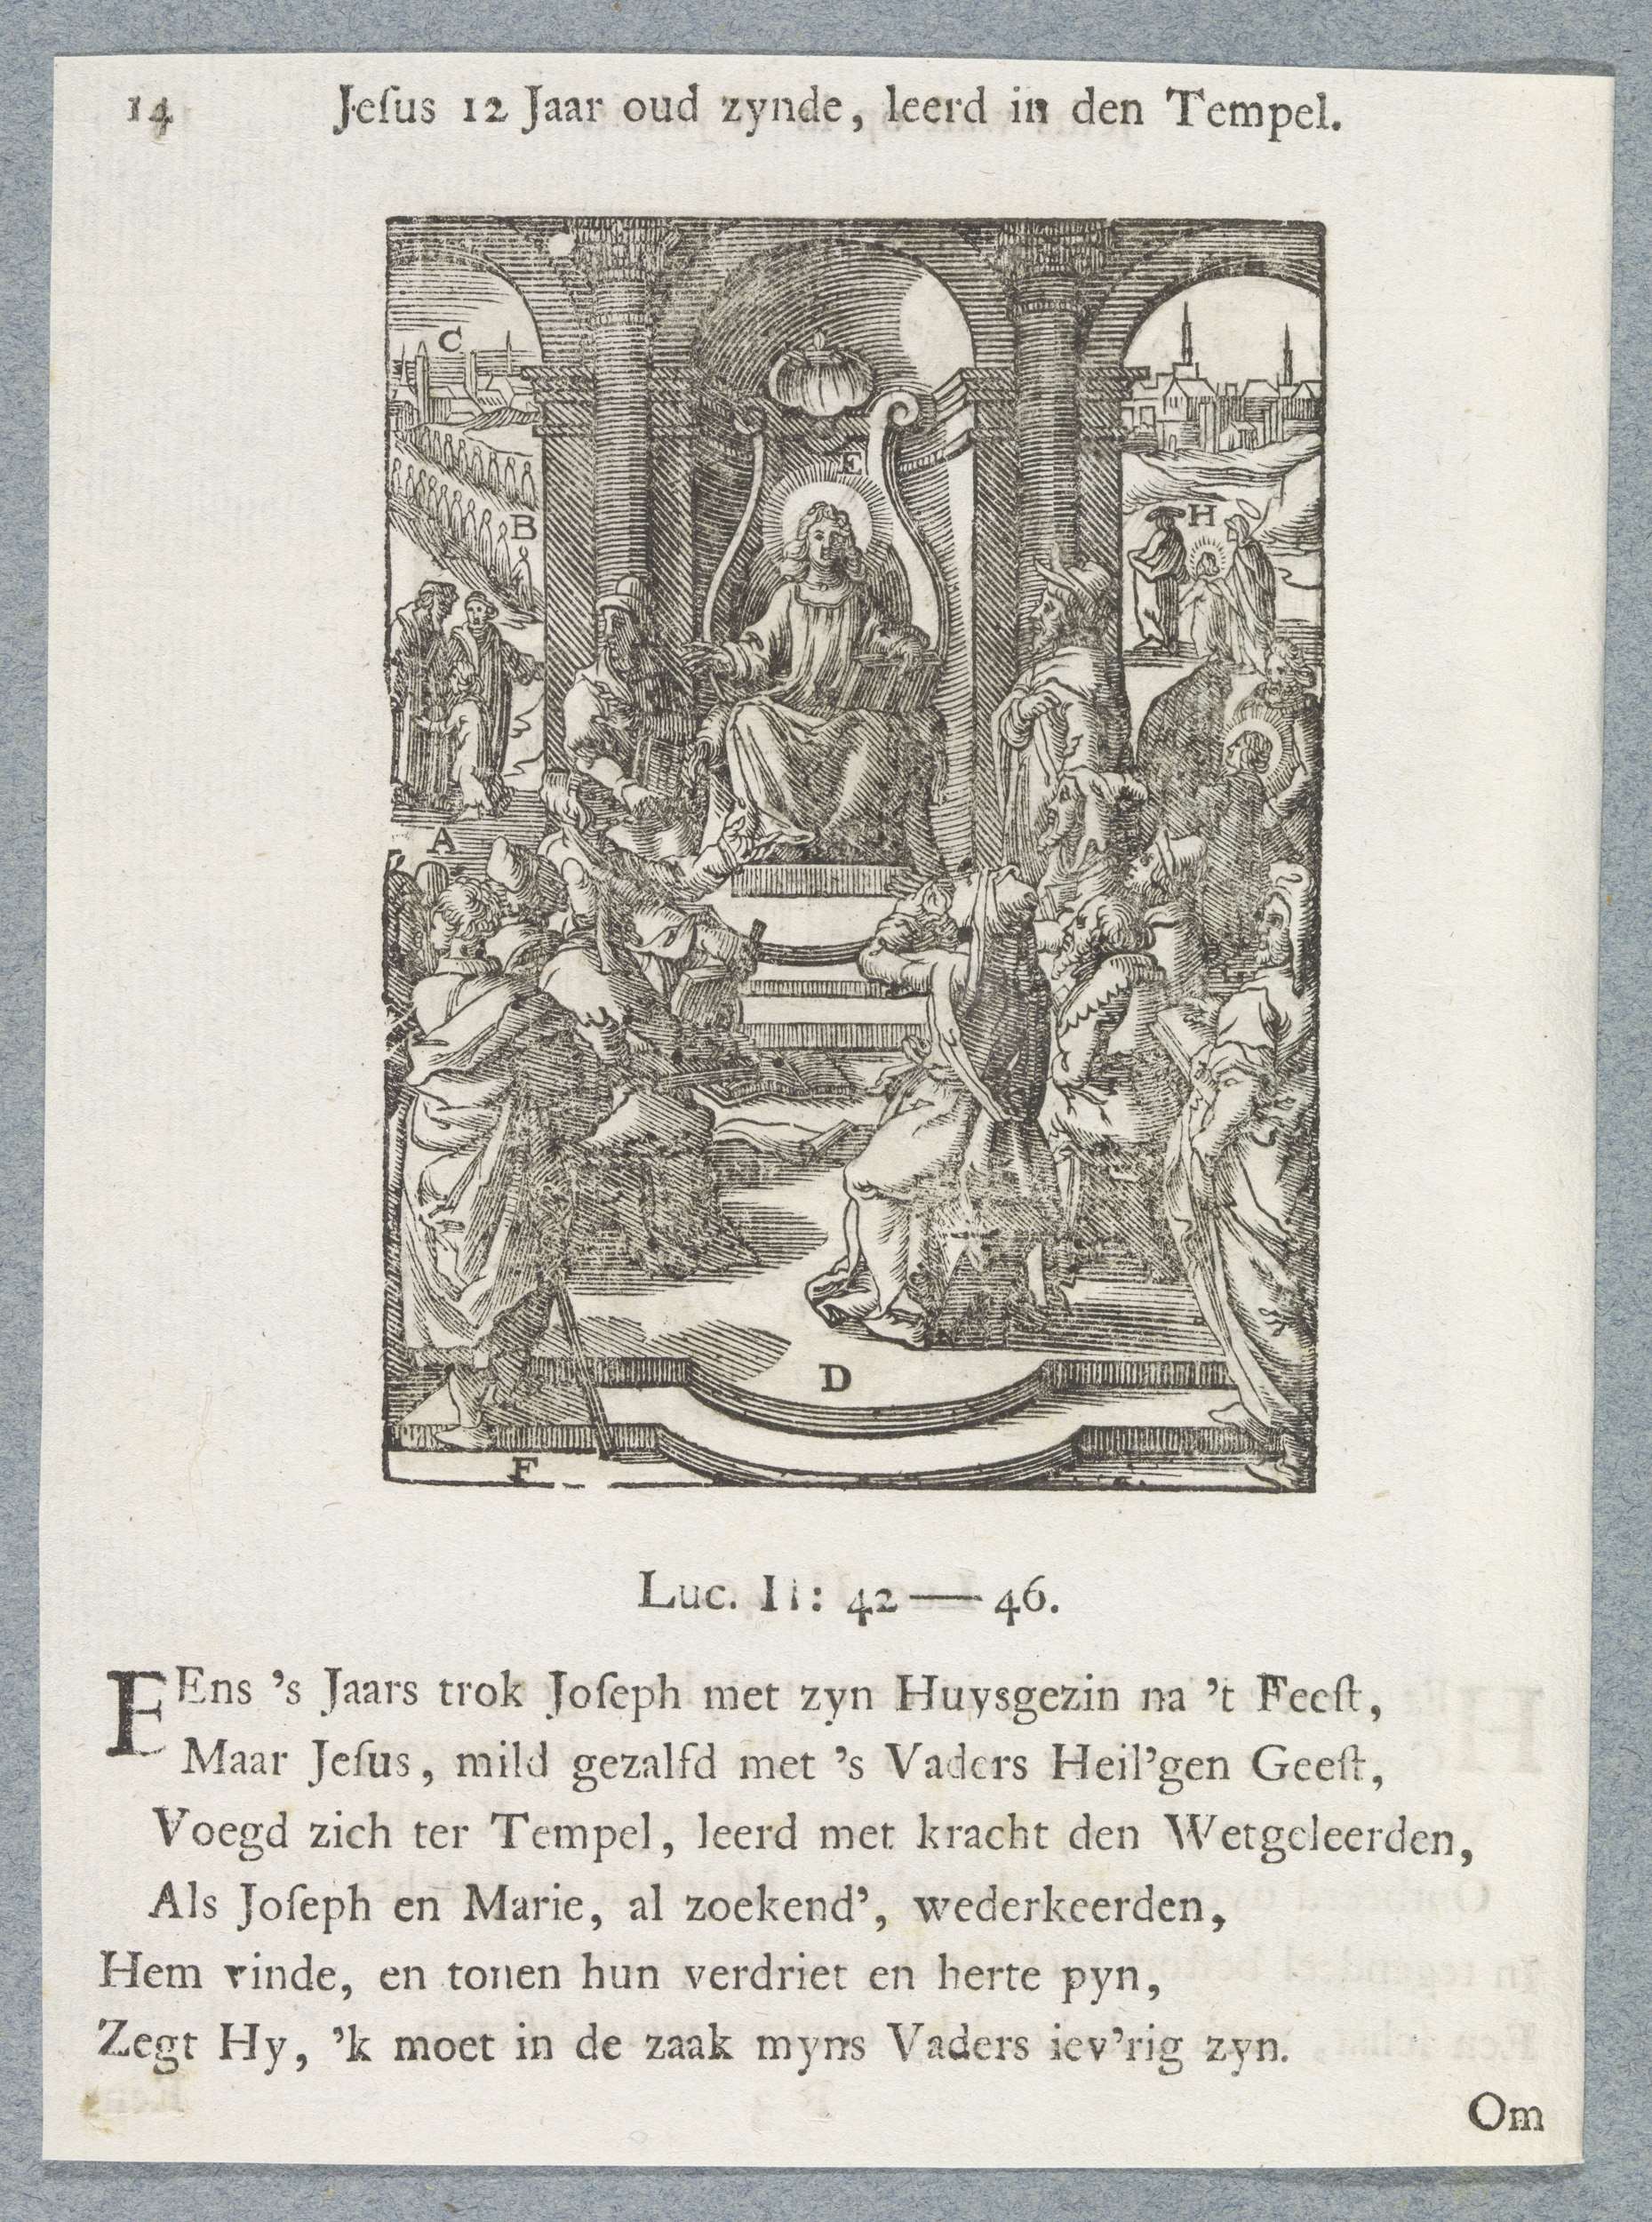 14 Jeſus 12 Jaar oud zynde, leerd in den Tempel.
C
E
B
H
A
D
F
Luc. II: 42 — 46.
EEns 's Jaars trok Joſeph met zyn Huysgezin na 't Feeſt,
Maar Jeſus, mild gezalfd met 's Vaders Heil'gen Geeſt,
Voegd zich ter Tempel, leerd met kracht den Wetgeleerden,
Als Joſeph en Marie, al zoekend', wederkeerden,
Hem vinde, en tonen hun verdriet en herte pyn,
Zegt Hy, 'k moet in de zaak myns Vaders iev'rig zyn.
Om